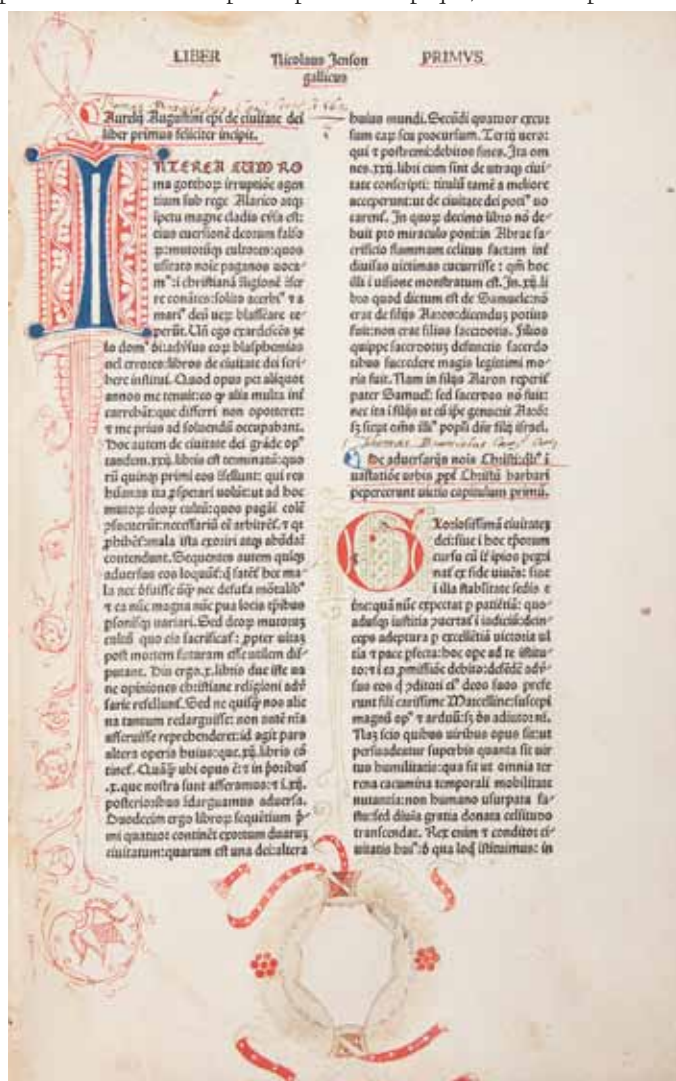 LIBER
Nicolaus Jenson
gallicus
PRIMVS
Aurelij Augustini epi de ciuitate dei
liber primus feliciter incipit.
INTEREA CUM RO
ma gothoꝝ irruptiōe agen
tium sub rege Alarico atqȝ
ipetu magne cladis eūsa est:
eius euersionē deorum falso
ꝝ: mutorūqȝ cultores: quos
usitato noie paganos uoca⸗
re conātes: solito acerbi⁹ ⁊ a
mari⁹ deū ueꝝ blasfēare ce⸗
perūt. Uñ ego exardescēs ze
lo dom⁹ di: aduersus eoꝝ blasphemias
uel errores: libros de ciuitate dei scri⸗
bere institui. Quod opus per aliquot
annos me tenuit: eo ꝙ alia multa int̄
currebāt: que differri non oporteret:
⁊ me prius ad soluendū occupabant.
Hoc autem de ciuitate dei grāde op⁹
tandem .xxij. libris est terminatū: quo
rū quinqȝ primi eos
humanas ita ꝓsperari uolūt: ut ad hoc
mutoꝝ deoꝝ cultū: quos pagāi colē
necessariū
mala ista exoriri atqȝ abūdā
contendunt. Sequentes autem quīqȝ
aduersus eos loquūt̄: q̄ satēt̄ hec ma⸗
la nec
⁊ ea nūc magna nūc pua locis tpibus
psonisqȝ uariari. Sed deoꝝ mutoꝝ
cultū quo eis sacrificat̄: ꝓpter uitaȝ
post mortem futuram esse utilem dis⸗
putant. His ergo .x. libris due iste ua
ne opiniones christiane religioni adū
sarie refellunt̄. Sed ne quisqȝ nos alie
na tantum redarguisse: non autē nr̄a
asseruisse reprehenderet: id agit pars
altera operis huius: que .xij. libris cō
tinet̄. Quāqȝ ubi opus ē: ⁊ in pōribus
.x. que nostra sunt asseramus: ⁊ i .xij.
posterioribus idarguamus aduersa.
Duodecim ergo libroꝝ sequētium p̄
mi quatuor continēt exortum duaruȝ
ciuitatum: quarum est una dei: altera
huius mundi. Secūdi quatuor excur
sum eaꝝ seu procursum. Tertij uero:
qui ⁊ postremi: debitos fines. Ita om
nes .xxij. libri cum sint de utraqȝ ciui⸗
tate conscripti: titulū tamē a meliore
acceperunt: ut de ciuitate dei poti⁹ uo
carent̄. In quoꝝ decimo libro nō de⸗
buit pro miraculo poni: in Abrae sa⸗
crificio flammam celitus factam int̄
diuisas uictimas cucurrisse: qm̄ hoc
illi i uisione monstratum est. In .xij. li
bro quod dictum est de Samuele: nō
erat de filijs Aaron: dicendum potius
fuit: non erat filius sacerdotis. Filios
quippe sacerdotuȝ defunctis sacerdo
tibus succedere magis legitimi mo⸗
ris fuit. Nam in filijs Aaron reperit̄
pater Samuel: sed sacerdos nō fuit:
nec ita i filijs ut eū ipe genuerit Aarō:
sȝ sicut omīs illi⁹ popli dn̄r filij israel.
De aduersarijs nois Christi: q̄s i
uastatiōe urbis ppt̄ Christū barbari
pepercerunt uictis capitulum primū.
Gloriosissimā ciuitateȝ
dei: siue i hoc tporum
cursu cū īt̄ ipios pegri
nat̄ ex fide uiuēs: siue
i illa stabilitate sedis e
tne: quā nūc expectat p patiētiā: quo⸗
adusqȝ iustitia ꝯuertat̄ i iudiciū: dein⸗
ceps adeptura p excellētiā uictoria ul
tia ⁊ pace pfecta: hoc ope ad te istitu⸗
to: ⁊ i ea pmissiōe debito: defēdē adū⸗
sus eos q̄ ꝯditori ei⁹ deos suos prefe
runt fili carissime Marcelline: suscepi
magnū op⁹ ⁊ arduū: sȝ ds adiutor nī.
Naȝ scio quibus uiribus opus sit: ut
persuadeatur superbis quanta sit uir
tus humilitatis: qua fit ut omnia ter
rena cacumina temporali mobilitate
nutantia: non humano usurpata fa⸗
stu: sed diuīa gratia donata celsitudo
transcendat. Rex enim ⁊ conditor ci⸗
uitatis hui⁹: d̄ qua loq̄ istituimus: in